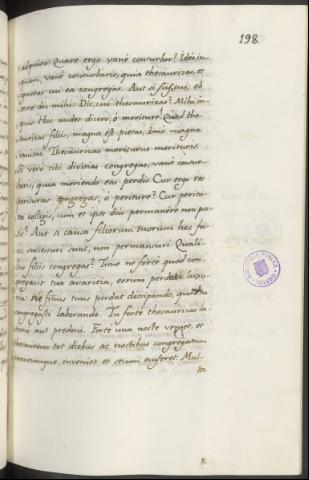 198.
adquiro. Quare ergo vanè conturbor? Ideò, in-
quam, vanè conturbaris, quia thesaurizas, et
ignoras cui ea congregas. Aut si scis, cui, ob-
secro dic mihi: Dic, cui thesaurizas? Mihi, in-
quis: Hoc audes dicere, ò moriture? Quid the-
saurizas filiis, magna est pietas, imo magna
vanitas. Thesaurizas moriturus morituris.
tibi divitias congregas, vanè contur-
baris, quia moriendo eas perdis. Cur ergo res
perituras congregas, ò periture? Cur peritu-
ra colligis, cum et ipse diu permanere non pos-
sis? Aut si causa filiorum tuorum hoc fa-
cis, successuri sunt, non permansuri. Quali-
bus filiis congregas? Timeo ne forte quod con-
gregavit tua avaritia, eorum perdat luxu-
ria: Ne filius tuus perdat dissipando, quod tu
congregasti laborando. Tu forte thesaurizas la-
troni aut predoni. Forte una nocte veniet, et
thesaurum tot diebus ac noctibus congregatum
inveniet et secum auferet. Mul-
ta
TOLEDO